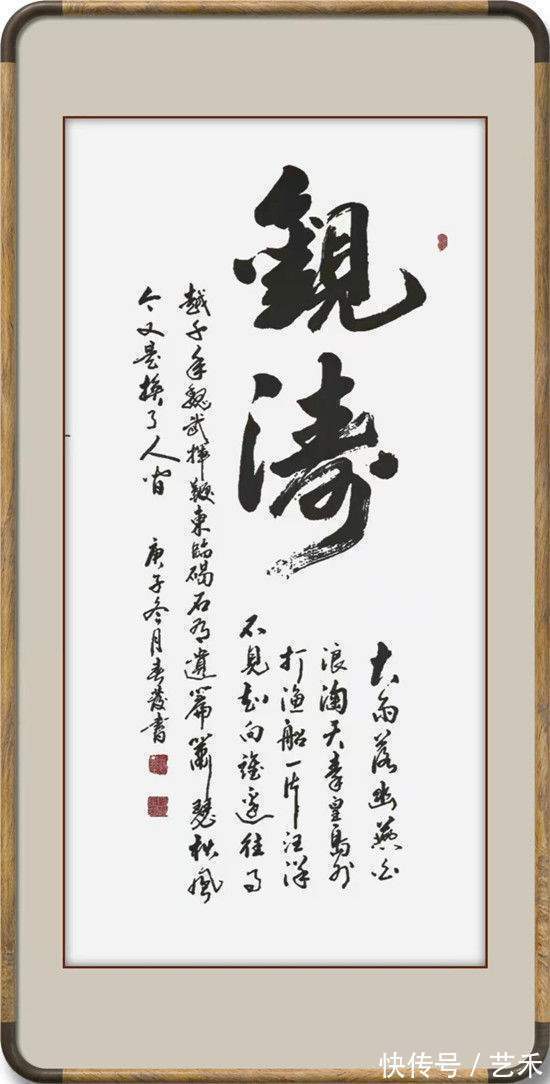 觀濤
大雨落幽燕白
浪淘天秦皇島外
打渔船一片汪洋
不見知向誰邊往事
越千年魏武揮鞭東臨碣石有遺篇蕭瑟秋風
今又是換了人間 庚子冬月春發書
快传号 / 艺禾